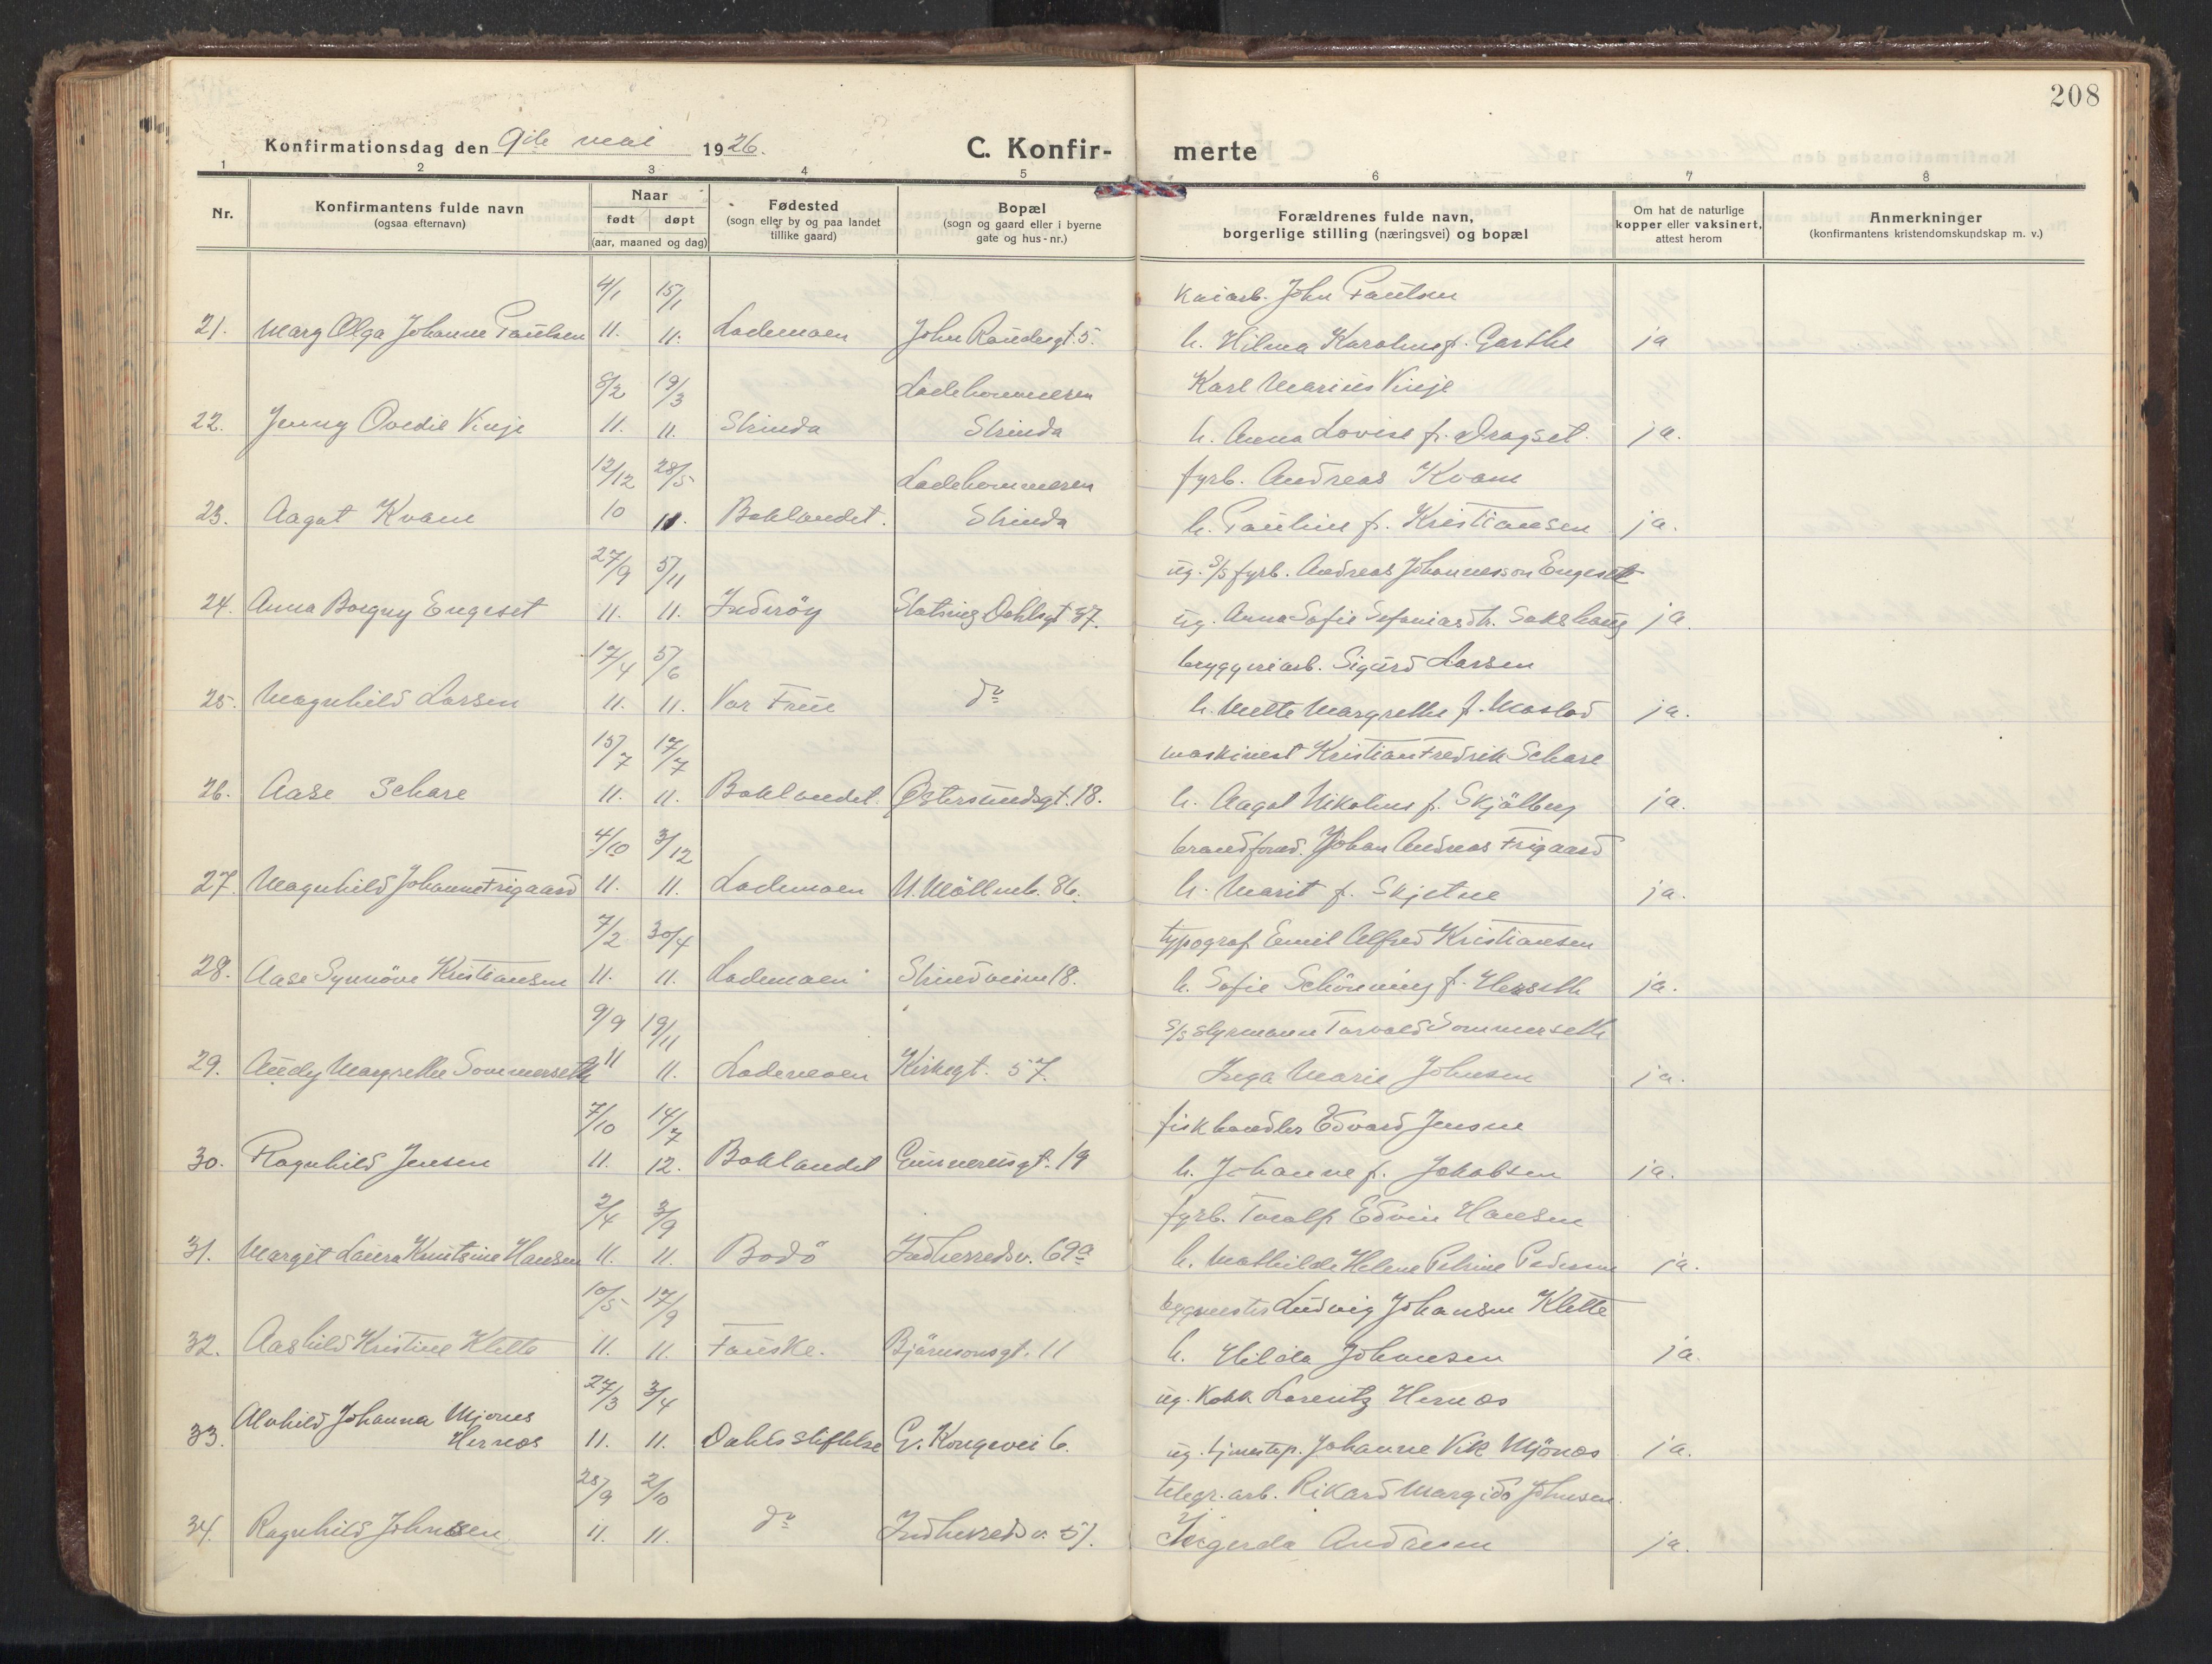 208
Konfirmationsdag den 9de mai 1926.
C. Konfir- merte
1 2 3 4 5 6 7 8
Nr.
Konfirmantens fulde navn
(ogsaa efternavn)
Naar
født døpt
(aar, maaned og dag)
Fødested
(sogn eller by og paa landet
tillike gaard)
Bopæl
(sogn og gaard eller i byerne
gate og hus-nr.)
Forældrenes fulde navn,
borgerlige stilling (næringsvei) og bopæl
Om hat de naturlige
kopper eller vaksinert,
attest herom
Anmerkninger
(konfirmantens kristendomskundskap m. v.)
4/1 15/1 Kaiarb. John Paulsen
21. Marg Olga Johanne Paulsen 11. 11. Lademoen John Raudesgt. 5. h. Hilma Karoline f. Garthe ja
8/2 19/3 Ladehammeren Karl Marius Vinje
22. Jenny Ovedie Vinje 11. 11. Strinda Strinda h. Anna Lovise f. Dragset. ja.
12/12 28/5 Ladehammeren fyrb. Andreas Kvam
23. Aagot Kvam 10 11. Baklandet. Strinda h. Pauline f. Kristiansen ja.
27/9 5/11 ug. S/S fyrb. Andreas Johannesson Engeset
24. Anna Borgny Engeset 11. 11. Inderöy Statsing Dahlsgt 37. ug. Anna Sofie Sefaniasdtr. Sakshaug ja.
17/4 5/6 bryggeriarb. Sigurd Larsen
25. Magnhild Larsen 11. 11. Vor Frue do h. Mette Margrethe f. Moslad ja.
15/7 17/7 maskinest Kristian Fredrik Schare
26. Aase Schare 11. 11. Baklandet. Östersundsgt. 18. h. Aagot Nikoline f. Skjälberg ja.
4/10 3/12 brandform. Johan Andreas Frigaard
27. Magnhild Johanne Frigaard 11. 11. Lademoen N. Möllenb. 86. h. Marit f. Skjetne ja.
7/2 30/4 typograf Emil Alfred Kristiansen
28. Aase Synnöve Kristiansen 11. 11. Lademoen Strindveien 18. h. Sofie Schönning f. Herseth ja.
9/9 19/11 S/S styrmann Torvald Sommerseth
29. Audy Margrethe Sommerseth 11 11. Lademoen Kirkegt. 57. Inga Marie Johnsen ja.
7/10 14/7 fiskhandler Edvard Jensen
30. Ragnhild Jensen 11. 12. Baklandet Gunnerusgt. 19 h. Johanne f. Jakobsen ja.
2/4 3/9 fyrb. Toralf Edvin Hansen
31. Margit Laura Knutsine Hansen 11. 11. Bodö Indherredsv. 69a h. Mathilde Helene Petrine Pedersen ja.
10/5 17/9 byggmester Ludvig Johansen Klette
32. Aashild Kristine Klette 11. 11. Fauske. Björnsonsgt. 11 h. Hilda Johansen ja.
27/3 3/4 ug. Kokk Lorentz Hernes
Alvhild Johanna Mjönes
33. Hernes 11. 11. Dahls stiftelse G. Kongevei 6. ug. tjenestep. Johanne Vik Mjönes ja.
28/9 2/10 telegr. arb. Rikard Margido Johnsen.
34. Ragnhild Johnsen 11. 11. do Indherredsv. 51. Ingerda Andresen ja.